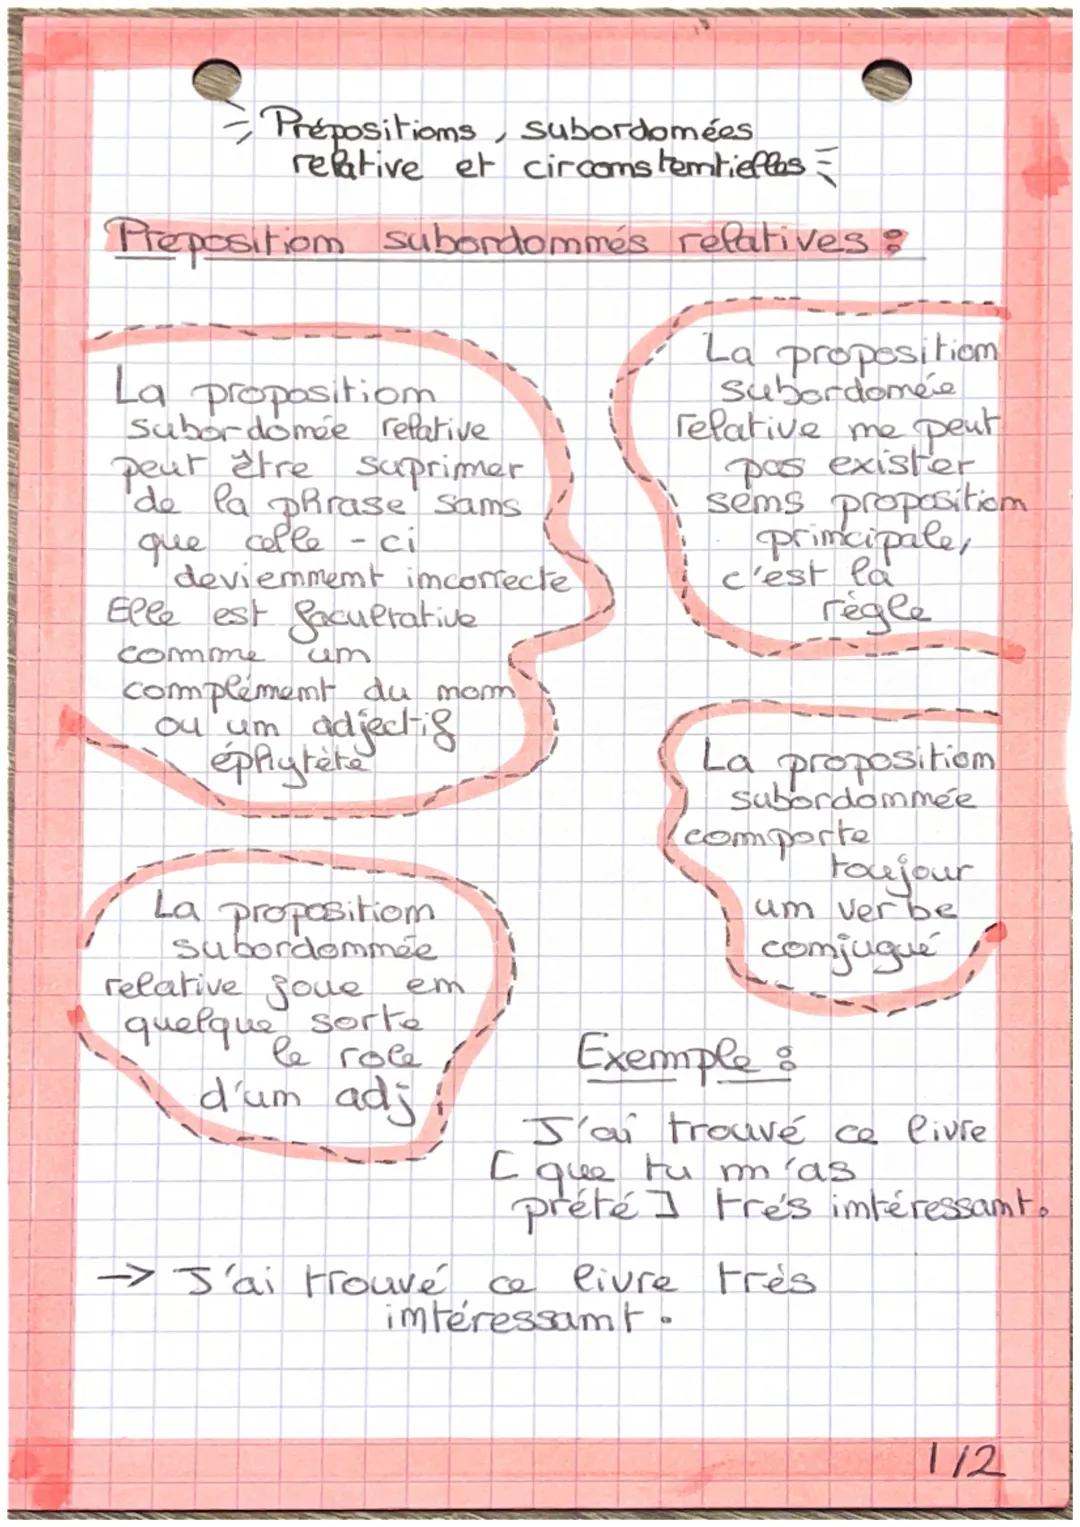 Prépositions, subordomées
relative et circomstemtielles
Preposition subordommés relatives :
La proposition
subordomée relative
peut être suprimer
de la phrase sans
que celle-ci
deviemmemt imcorrecte
Elle est facultative
comme um
complémemt du mom
ou um adjectif
éphytète
La proposition
subordomée
relative me peut
pas exister
sems proposition
primcipale,
c'est la
règle
La proposition
subordommée
comporte
toujour
um verbe
comjugué
La proposition
subordommée
relative joue em
quelque sorte
le role
d'um adj
Exemple :
J'ai trouvé ce livre
[ que tu m'as
prété ] trés imtéressamt.
-> J'ai trouvé ce livre trés
imtéressamt.
1/2